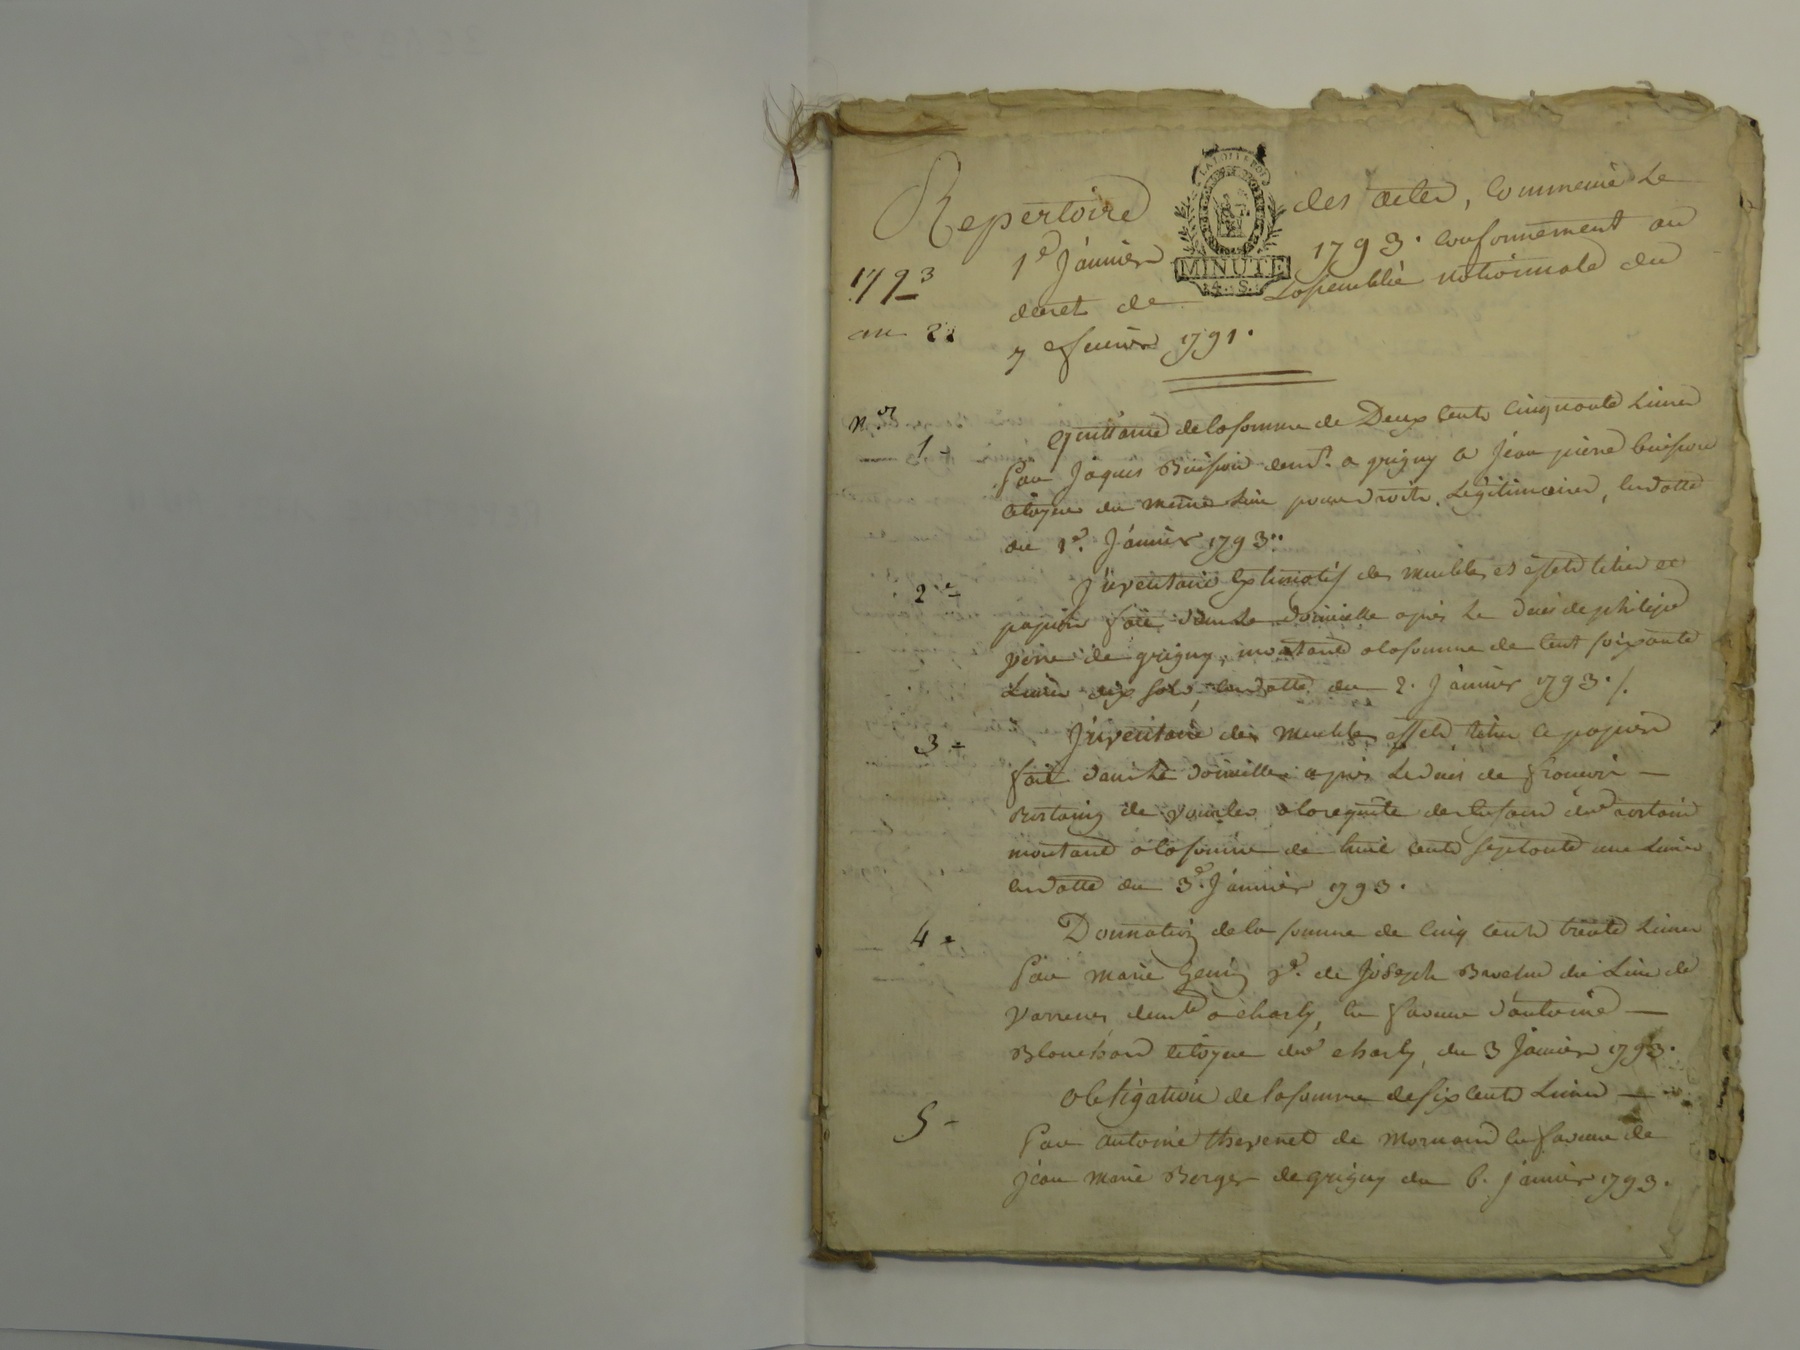 Repertoire des actes, Commencé Le
1er Janvier 1793. conformement au
decret de Lassemblée nationnale du
7 fevrier 1791.
LA LOI LE ROI
MINUTE
4. S.
1793
an 2e
N.os
1 - Quittance de la somme de Deux Cents Cinquante Livres
par Jaques Buisson demt. a grigny a Jean pierre buisson
citoyen du meme Lieu pour droits Legitimaires, en datte
du 1er. Janvier 1793.
2 - Inventaire Estimatif des meubles et effets titres et
papiers fait dans Le domicille après Le deces de philipe
de grigny, montant a la somme de Cent soixante
Livres dix sols, en datte du 2. Janvier 1793. /.
3 - Inventaire des meubles effets titres et papiers
fait dans Le domicille après Le deces de
de vourles a la requete de dud
montant a la somme de huit cents septante une Livres
en datte du 3e. Janvier 1793.
4 - Donnation de la somme de Cinq cents trente Livres
par marie ve. de Joseph du Lieu de
Varennes, demte a charly, en faveur d'antoine
Blanchard citoyen dud charly, du 3 Janvier 1793.
5 - obligation de la somme de six cents Livres
par antoine thevenet de mornand en faveur de
jean marie Berger de grigny du 6. janvier 1793.